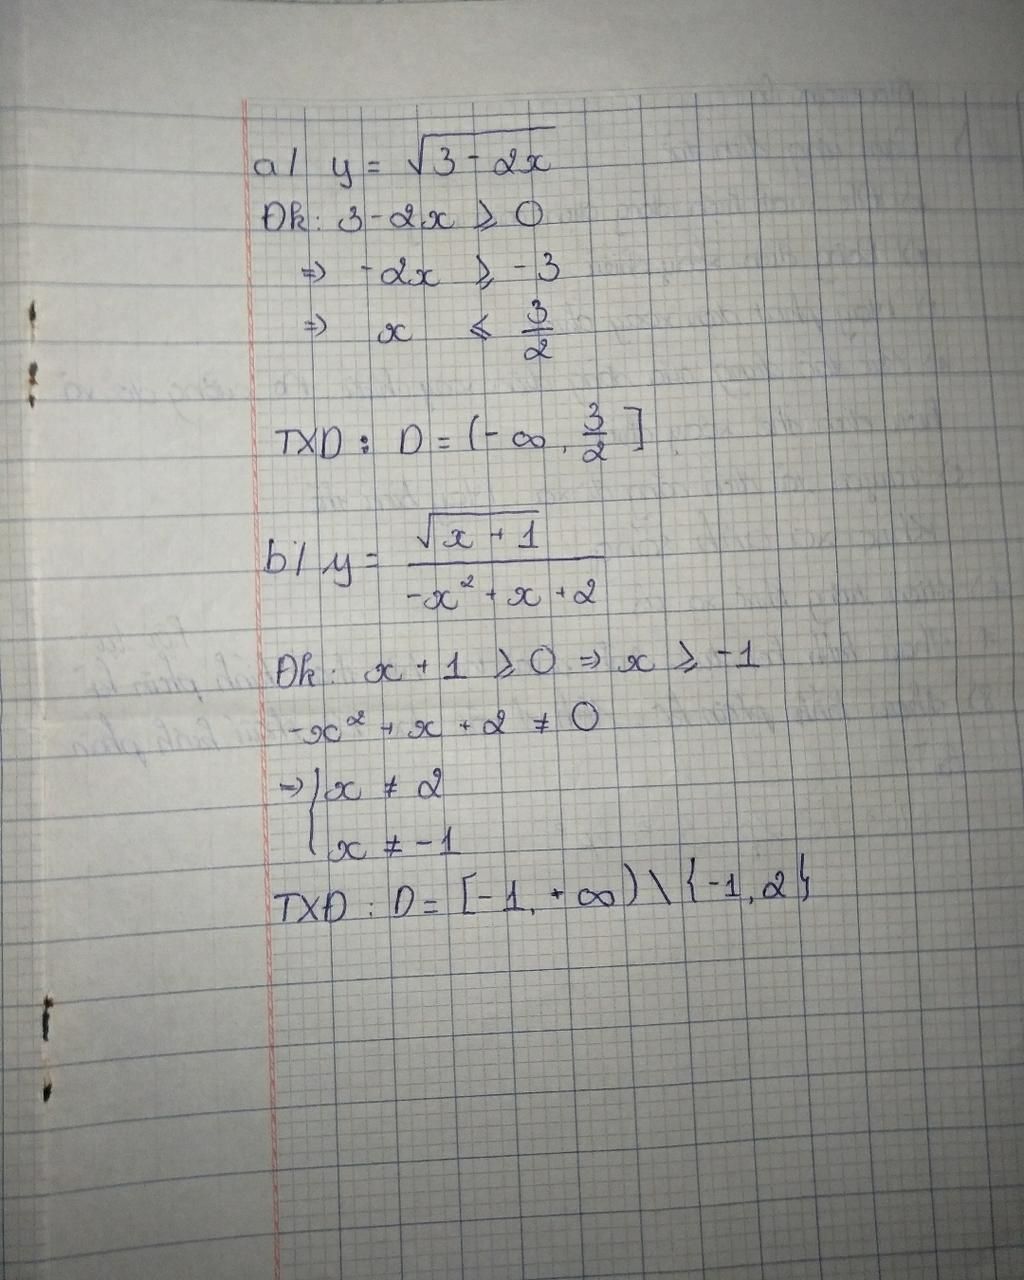 a/ y = √(3 - 2x)
Đk: 3 - 2x ⩾ 0
=> -2x ⩾ -3
=> x ⩽ 3/2
TXD : D = (-∞, 3/2]
b/ y = √(x + 1) / (-x² + x + 2)
Đk: x + 1 ⩾ 0 => x ⩾ -1
-x² + x + 2 ≠ 0
=> { x ≠ 2
x ≠ -1
TXĐ : D = [-1, +∞) \ {-1, 2}